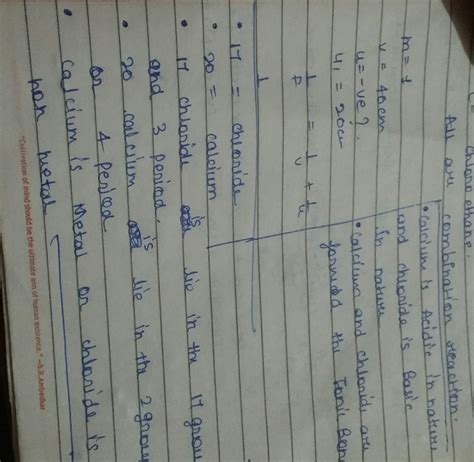 All are combination reaction.
• Calcium is Acidic in nature
and chloride is Basic
in nature
• calcium and chloride are
formed the Ionic Bon
m = 1
v = 40cm
u = -ve ?
u₁ = 20cm
1/P = 1/v + 1/u
• 17 = chloride
• 20 = calcium
• 17 chloride is lie in the 17 group
and 3 period.
• 20 calcium is lie in the 2 group
or 4 period
• Calcium is Metal or chloride is
non metal
"Cultivation of mind should be the ultimate aim of human existence." -B.R. Ambedkar